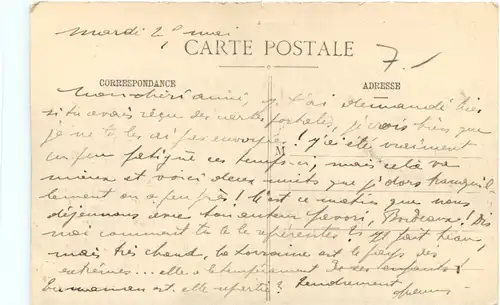 mardi 29 mai
CARTE POSTALE
7.1
CORRESPONDANCE
ADRESSE
Mon chéri aimé, je t'ai demandé hier
si tu avais reçu des cartes postales, je crois bien que
je ne te les ai pas envoyées! j'ai été vraiment
M
un peu fatigué ces temps-ci, mais cela va
mieux et voici deux nuits que je dors tranquil
lement ou à peu près! C'est ce matin que nous
déjeunons avec ton auteur favori, Bordeaux! Dis
moi comment tu te le représentes? Il fait beau,
mais très chaud, la Lorraine est le pays des
extrêmes... elle a le tempérament de ses enfants!
La maman est elle repartie? Tendrement